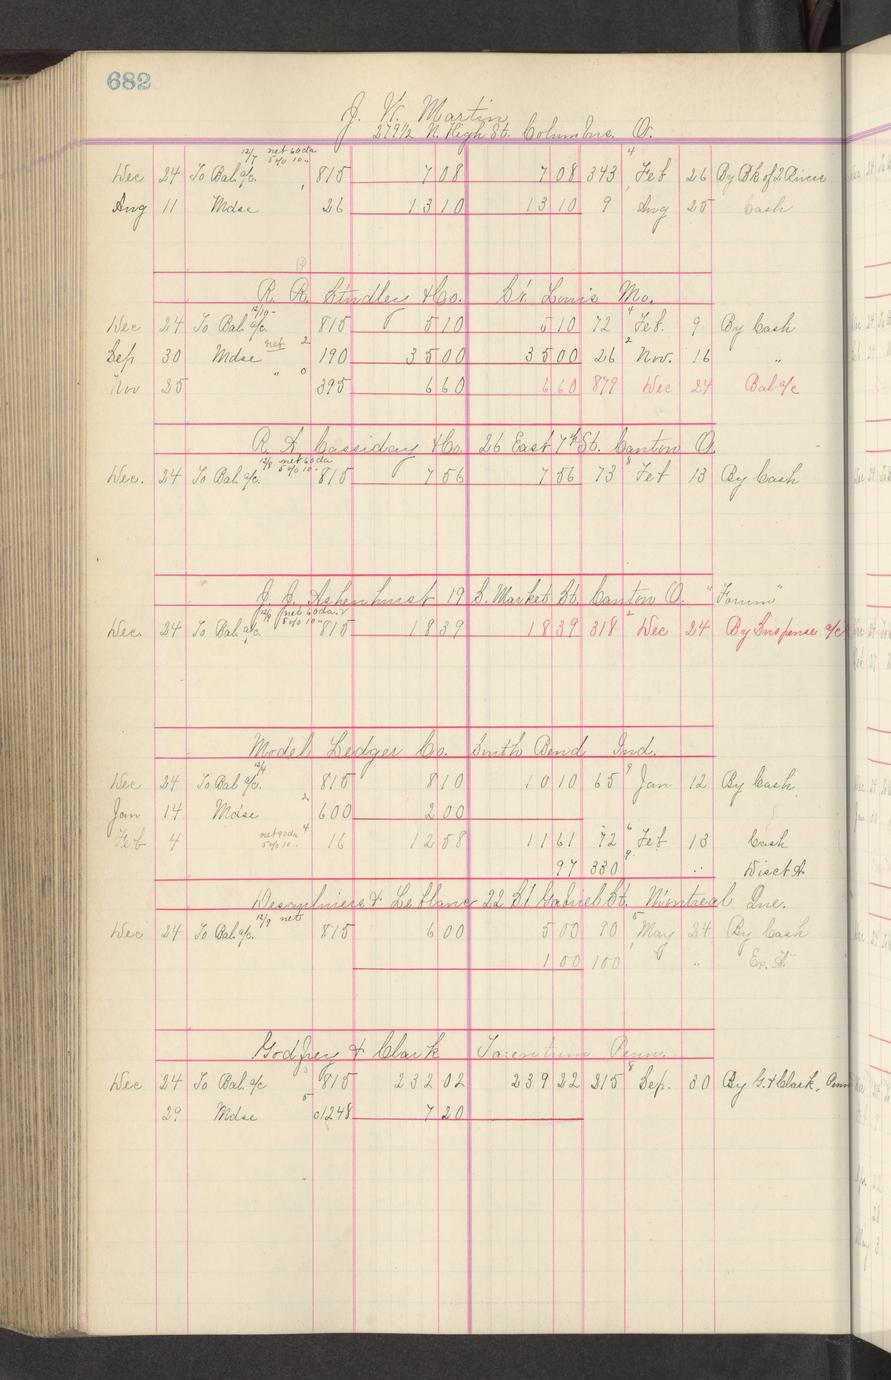 682
J. W. Martin
279 1/2 N. High St. Columbus. O.
12/7 net 60 da
5% 10..
Dec 24 To Bal. a/c. 815 7 08 7 08 343 4 Feb 26 By Bk of 2 Rivers
Aug 11 Mdse 26 13 10 13 10 9 Aug 25 Cash
R. R. & Co. St. Louis Mo.
12/10-
Dec 24 To Bal. a/c. 815 5 10 5 10 72 4 Feb. 9 By Cash
Sep 30 Mdse net 2 190 35 00 35 00 26 2 Nov. 16 "
Nov 25 " 0 395 6 60 6 60 879 Dec 24 Bal a/c
R. A. Cassiday & Co. 26 East 7th St. Canton O.
12/8 net 60 da
5% 10-
Dec. 24 To Bal. a/c. 815 7 56 7 56 73 8 Feb 13 By Cash
J. J. Ashenhurst 19 S. Market St. Canton O. "Forum"
net 60 da.
5% 10..
Dec. 24 To Bal. a/c. 815 18 39 18 39 318 2 Dec 24 By Suspense a/c
Model Ledger Co. South Bend Ind.
12/4
Dec 24 To Bal a/c. 815 8 10 10 10 65 9 Jan 12 By Cash
Jan 14 Mdse 2 600 2 00
Feb 4 net 90 da 4 16 12 58 11 61 72 6 Feb 13 Cash
5% 10..
97 330 9 .. Disct A.
Desaulniers & Leblanc 22 St Gabriel St. Montreal Que.
12/9 net
Dec 24 To Bal. a/c. 815 6 00 5 00 90 5 May 24 By Cash
1 00 100 .. Ex. A.
Godfrey & Clark Tarentum Penn.
Dec 24 To Bal. a/c 815 232 02 239 22 215 8 Sep. 30 By G. & Clark, Penn
29 Mdse 5 c1248 7 20